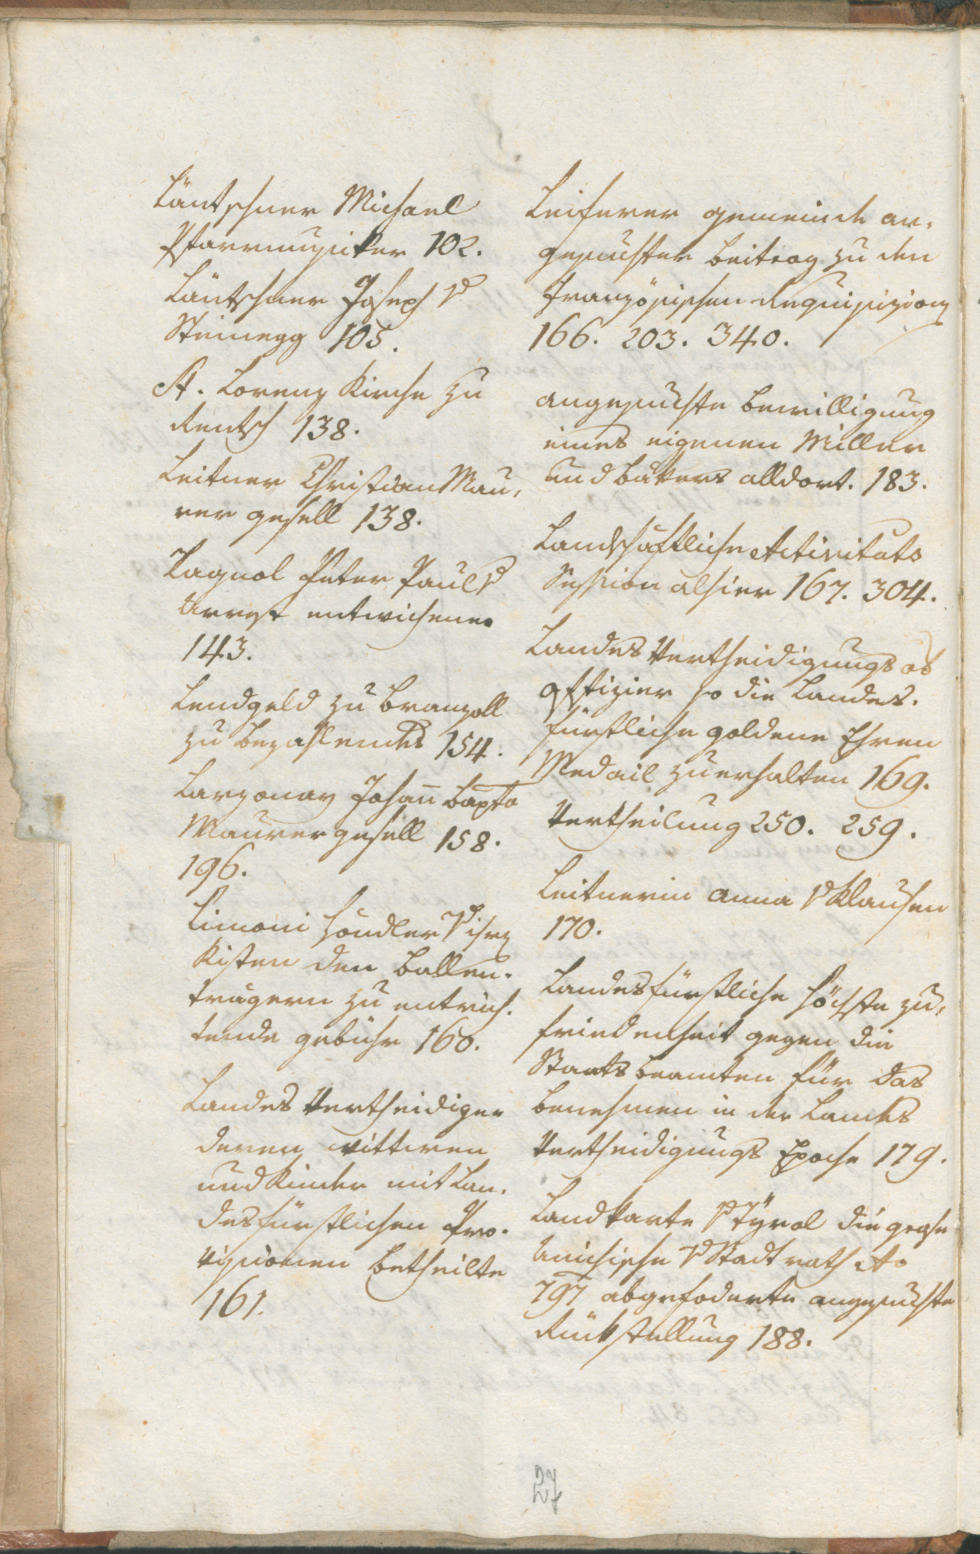 Läntschner Michael
Pfarrmusiker 102.
Läntschner Joseph v
Steinegg 105.
St. Lorenz Kirche zu
Rentsch 138.
Leitner Christian Mau,
rer gesell 138.
Lagnol Peter Paul v
Arrest entwichener
143.
Lendgeld zu Branzoll
zu bezahlendes 154.
Larzonay Johan Bapta
Maurergesell 158.
196.
Limoni Händler v ihrz
Kisten den Ballen-
trägern zu entrich-
tende gebühr 160.
Landes Vertheidiger
deren wittwen
und Kinder mit Lan-
desfürstlichen Pro-
visionen betheilte
161.
Leiferer gemeinde an,
gesuchter beitrag zu den
französischen Requisizionen
166. 203. 340.
angesuchte bewilligung
eines eigenen Miller
und bäkers alldort. 183.
Landschaftliche Activitäts
Session alhier 167. 304.
Landes Vertheidigungs ob
offizier so die Landes-
fürstliche goldene Ehren
Medail zu erhalten 169.
Vertheilung 250. 259.
Leitnerin Anna v Klausen
170.
Landesfürstliche höchste zu,
friedenheit gegen die
Staatsbeamten für das
benehmen in der Landes
Vertheidigungs Epoche 179.
Landkarte v Tÿrol die große
Anichische v Stadtrath Ao
797 abgefoderte angesuchte
Rückstellung 188.
27